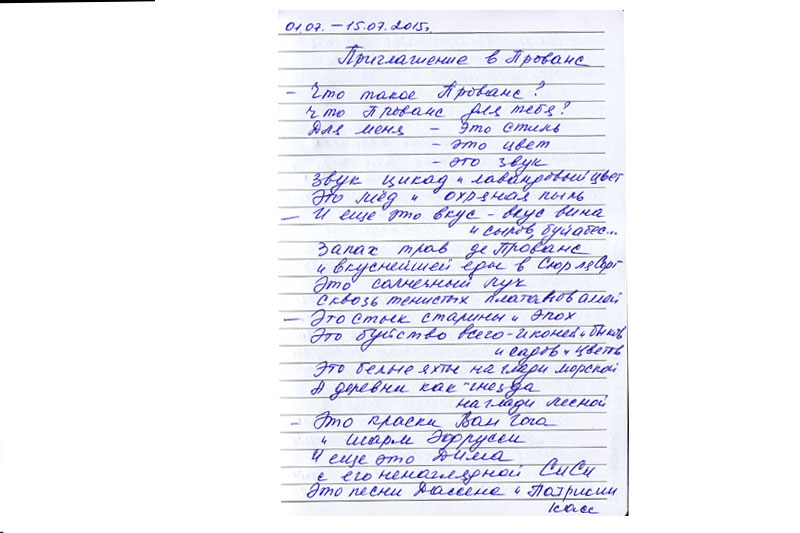 01.07. – 15.07.2015г.
Приглашение в Прованс
– Что такое Прованс?
Что Прованс для тебя?
Для меня – это стиль
– это цвет
– это звук
Звук цикад и лавандовый цвет
Это мёд и охряная пыль
– И еще это вкус – вкус вина
и сыров, буйабес...
Запах трав де Прованс
и вкуснейшей еды в Сюр ля Сорг
Это солнечный луч
сквозь тенистых платанов аллей
– Это стык старины и эпох
Это буйство всего – и коней и быков
и садов и цветов
Это белые яхты на глади морской
А деревни как гнезда
на глади лесной
– Это краски Ван Гога
и шарм Эфрусси
И еще это Дима
с его ненаглядной СиСи
Это песни Дассена и Патрисии
Касс